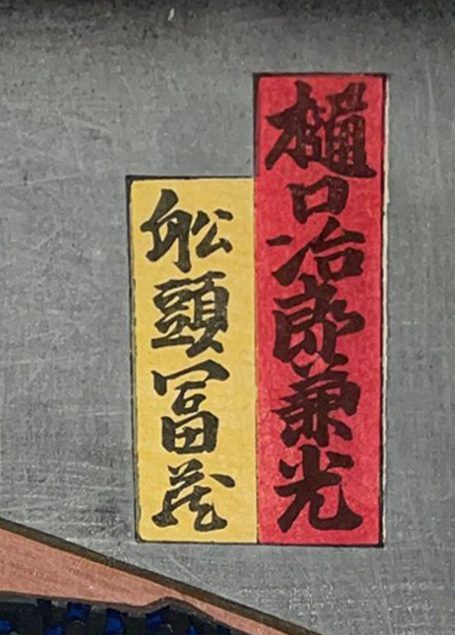 樋口冶郎兼光
舩頭冨蔵